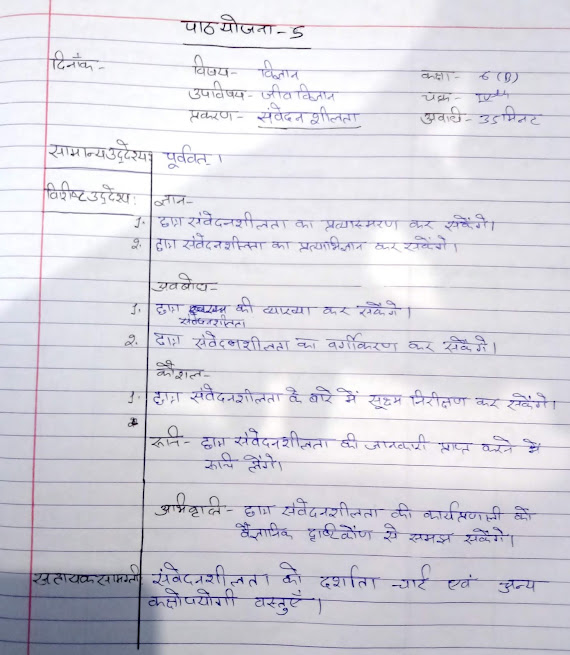 पाठयोजना - 5
दिनाँक- विषय- विज्ञान कक्षा- 6 (B)
उपविषय- जीव विज्ञान चक्र- IVth
प्रकरण- संवेदनशीलता अवधि- 35 मिनट
सामान्य उद्देश्य: पूर्ववत।
विशिष्ट उद्देश्य: ज्ञान-
1. छात्र संवेदनशीलता का प्रत्यास्मरण कर सकेंगे।
2. छात्र संवेदनशीलता का प्रत्याभिज्ञान कर सकेंगे।
अवबोध-
1. छात्र संवेदनशीलता की व्याख्या कर सकेंगे।
2. छात्र संवेदनशीलता का वर्गीकरण कर सकेंगे।
कौशल-
1. छात्र संवेदनशीलता के बारे में सूक्ष्म निरीक्षण कर सकेंगे।
रूचि- छात्र संवेदनशीलता की जानकारी प्राप्त करने में
रूचि लेंगे।
अभिवृत्ति- छात्र संवेदनशीलता की कार्यप्रणाली को
वैज्ञानिक दृष्टिकोण से समझ सकेंगे।
सहायक सामग्री संवेदनशीलता को दर्शाता चार्ट एवं अन्य
कक्षोपयोगी वस्तुएँ।